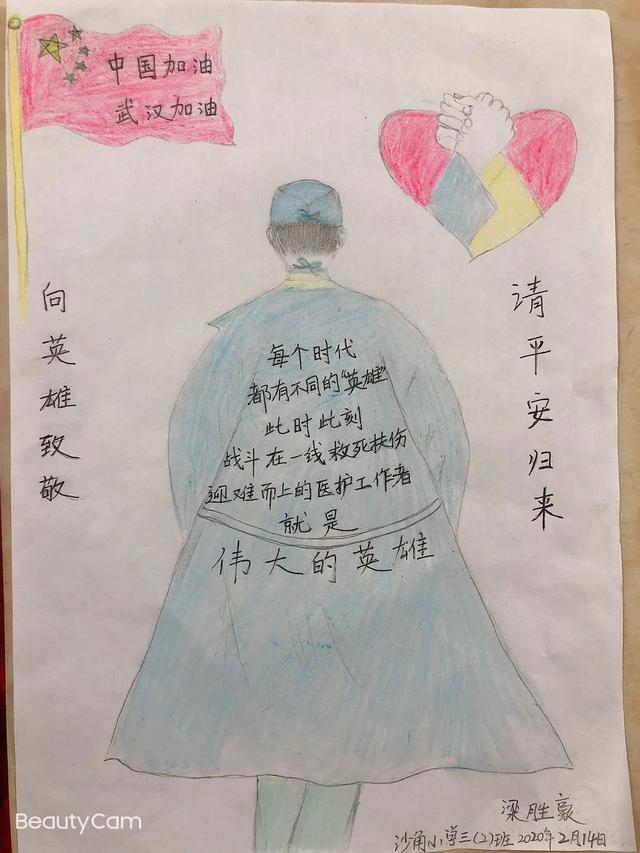 中国加油
武汉加油
向英雄致敬
请平安归来
每个时代
都有不同的"英雄"
此时此刻
战斗在一线救死扶伤
迎难而上的医护工作者
就是
伟大的英雄
梁胜豪
沙角小学三(2)班 2020年2月14日
BeautyCam